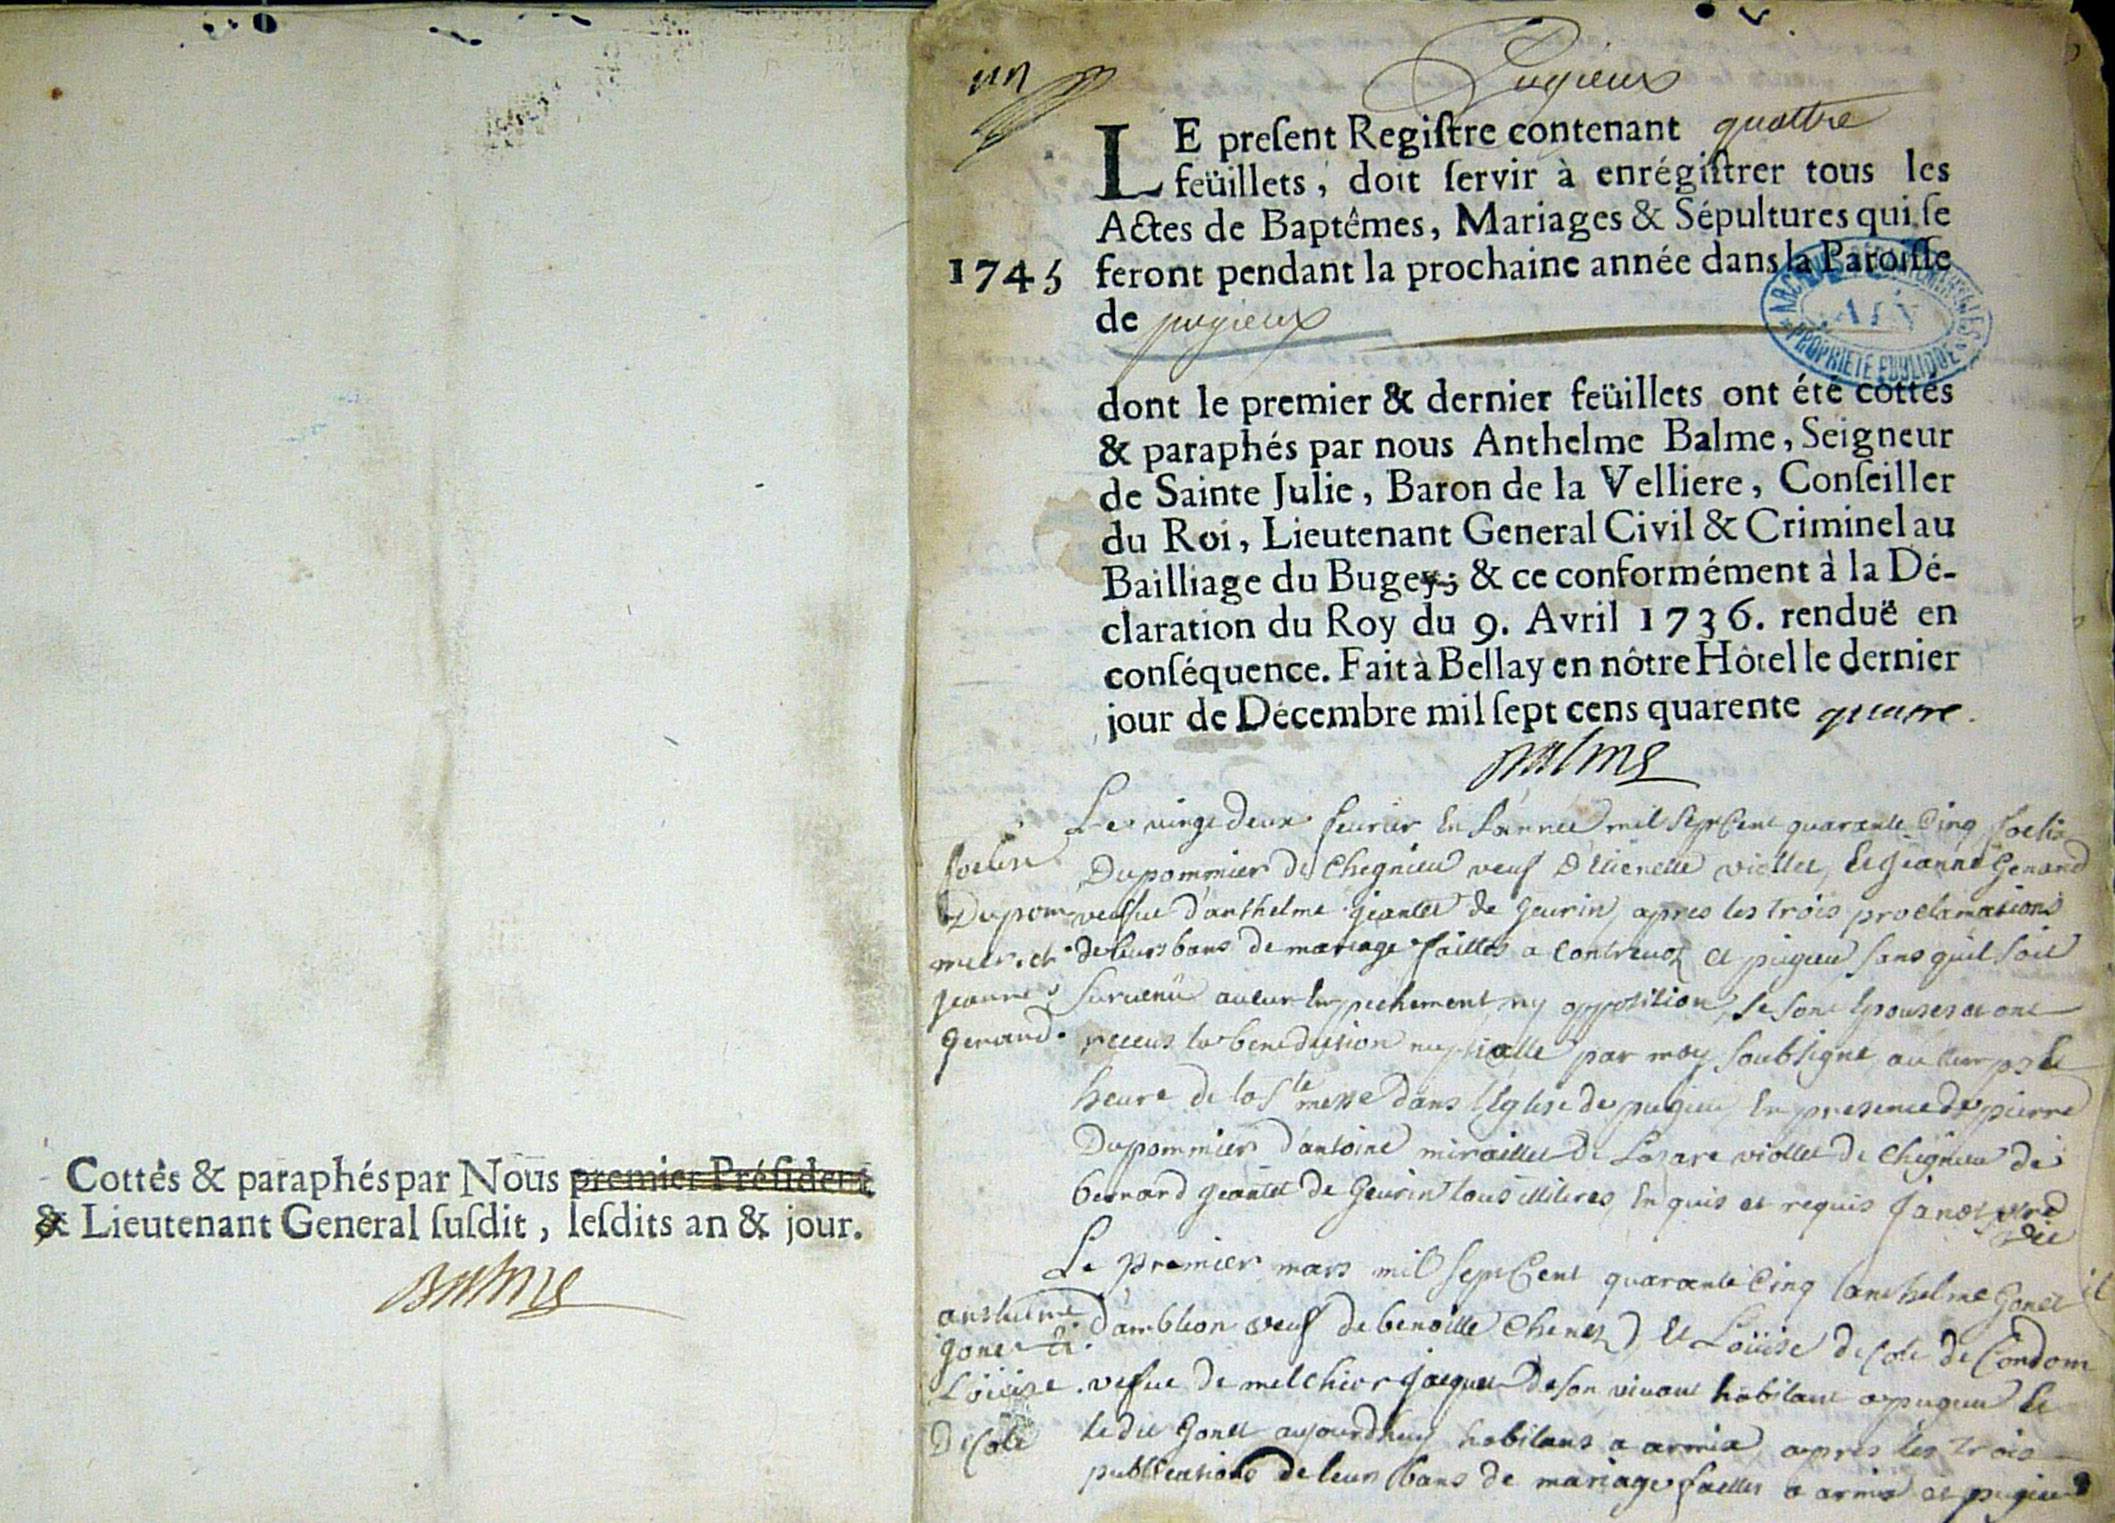 Cottés & paraphés par Nous premier Président
& Lieutenant General ſuſdit, leſdits an & jour.
Balme
un
Pugieux
LE preſent Regiſtre contenant quattre
feüillets, doit ſervir à enrégiſtrer tous les
Actes de Baptêmes, Mariages & Sépultures qui ſe
1745 feront pendant la prochaine année dans la Paroiſſe
de pugieux
ARCHIVES DÉPARTEMENTALES
AIN
PROPRIÉTÉ PUBLIQUE
dont le premier & dernier feüillets ont été cottés
& paraphés par nous Anthelme Balme, Seigneur
de Sainte Julie, Baron de la Velliere, Conſeiller
du Roi, Lieutenant General Civil & Criminel au
Bailliage du Bugey; & ce conformément à la Dé-
claration du Roy du 9. Avril 1736. renduë en
conſéquence. Fait à Bellay en nôtre Hôtel le dernier
jour de Décembre mil ſept cens quarente quatre.
Balme
Le vingt deux feurier En Lannée mil Sept Cent quarante Cinq
Dupommier de Chegnieu veuf D'Etienette viollet, Et Jeanne Genand
vefue d'anthelme geantet de Geurin, apres les trois proclamations
de leurs bans de mariage faittes a Contreuoz et pugieu sans quil soit
Suruenü aucun Empechement ny opposition, se sont Epousés et ont
receus la benediction nuptialle par moy Soubsigné
heure de la Ste messe dans l'Eglise de pugieu En presence de pierre
Dupommier d'antoine miraillet de Lazare viollet de Chegnieu de
bernard geantet de Geurin tous illiteres, En quis et requis
Dupom
mier et
Jeanne
Genand.
Le premier mars mil Sept Cent quarante Cinq anthelme Gonet
d'amblion veuf de benoitte Et Loüise Decote de Condom
vefue de melchior Jacquet de son viuant habitant a pugieu Et
le dit Gonet aujourdhuy habitans a armix, apres les trois
publications de leurs bans de mariage faittes a armix et pugieu
anthelme
Gonet Et
Loüise
Decote